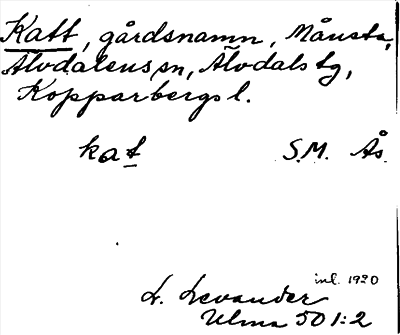 Katt, gårdsnamn, Månsta,
Älvdalens sn, Älvdals tg,
Kopparbergs l.
kat S.M. Ås.
inl. 1920
L. Levander
Ulma 501:2